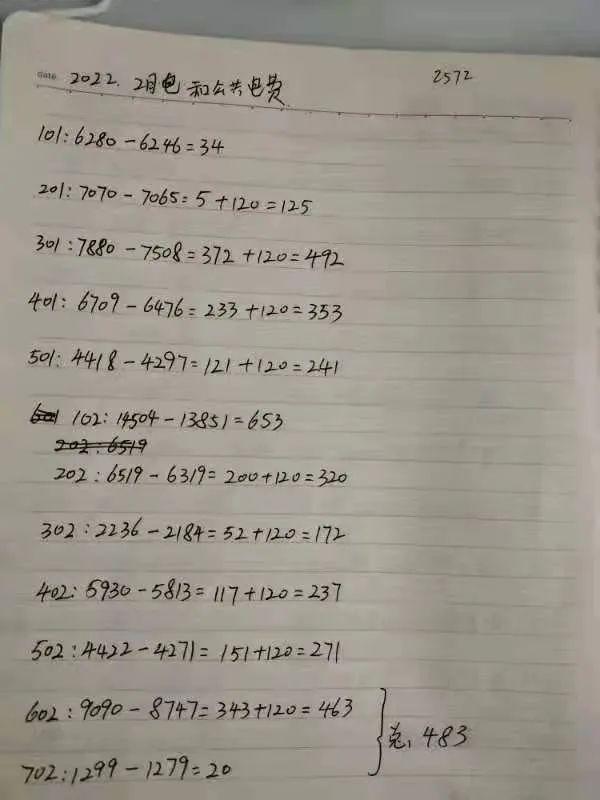 date 2022. 2月电和公共电费 2572
101:6280-6246=34
201:7070-7065=5+120=125
301:7880-7508=372+120=492
401:6709-6476=233+120=353
501:4418-4297=121+120=241
601 102:14504-13851=653
202:6519
202:6519-6319=200+120=320
302:2236-2184=52+120=172
402:5930-5813=117+120=237
502:4422-4271=151+120=271
602:9090-8747=343+120=463
483
702:1299-1279=20